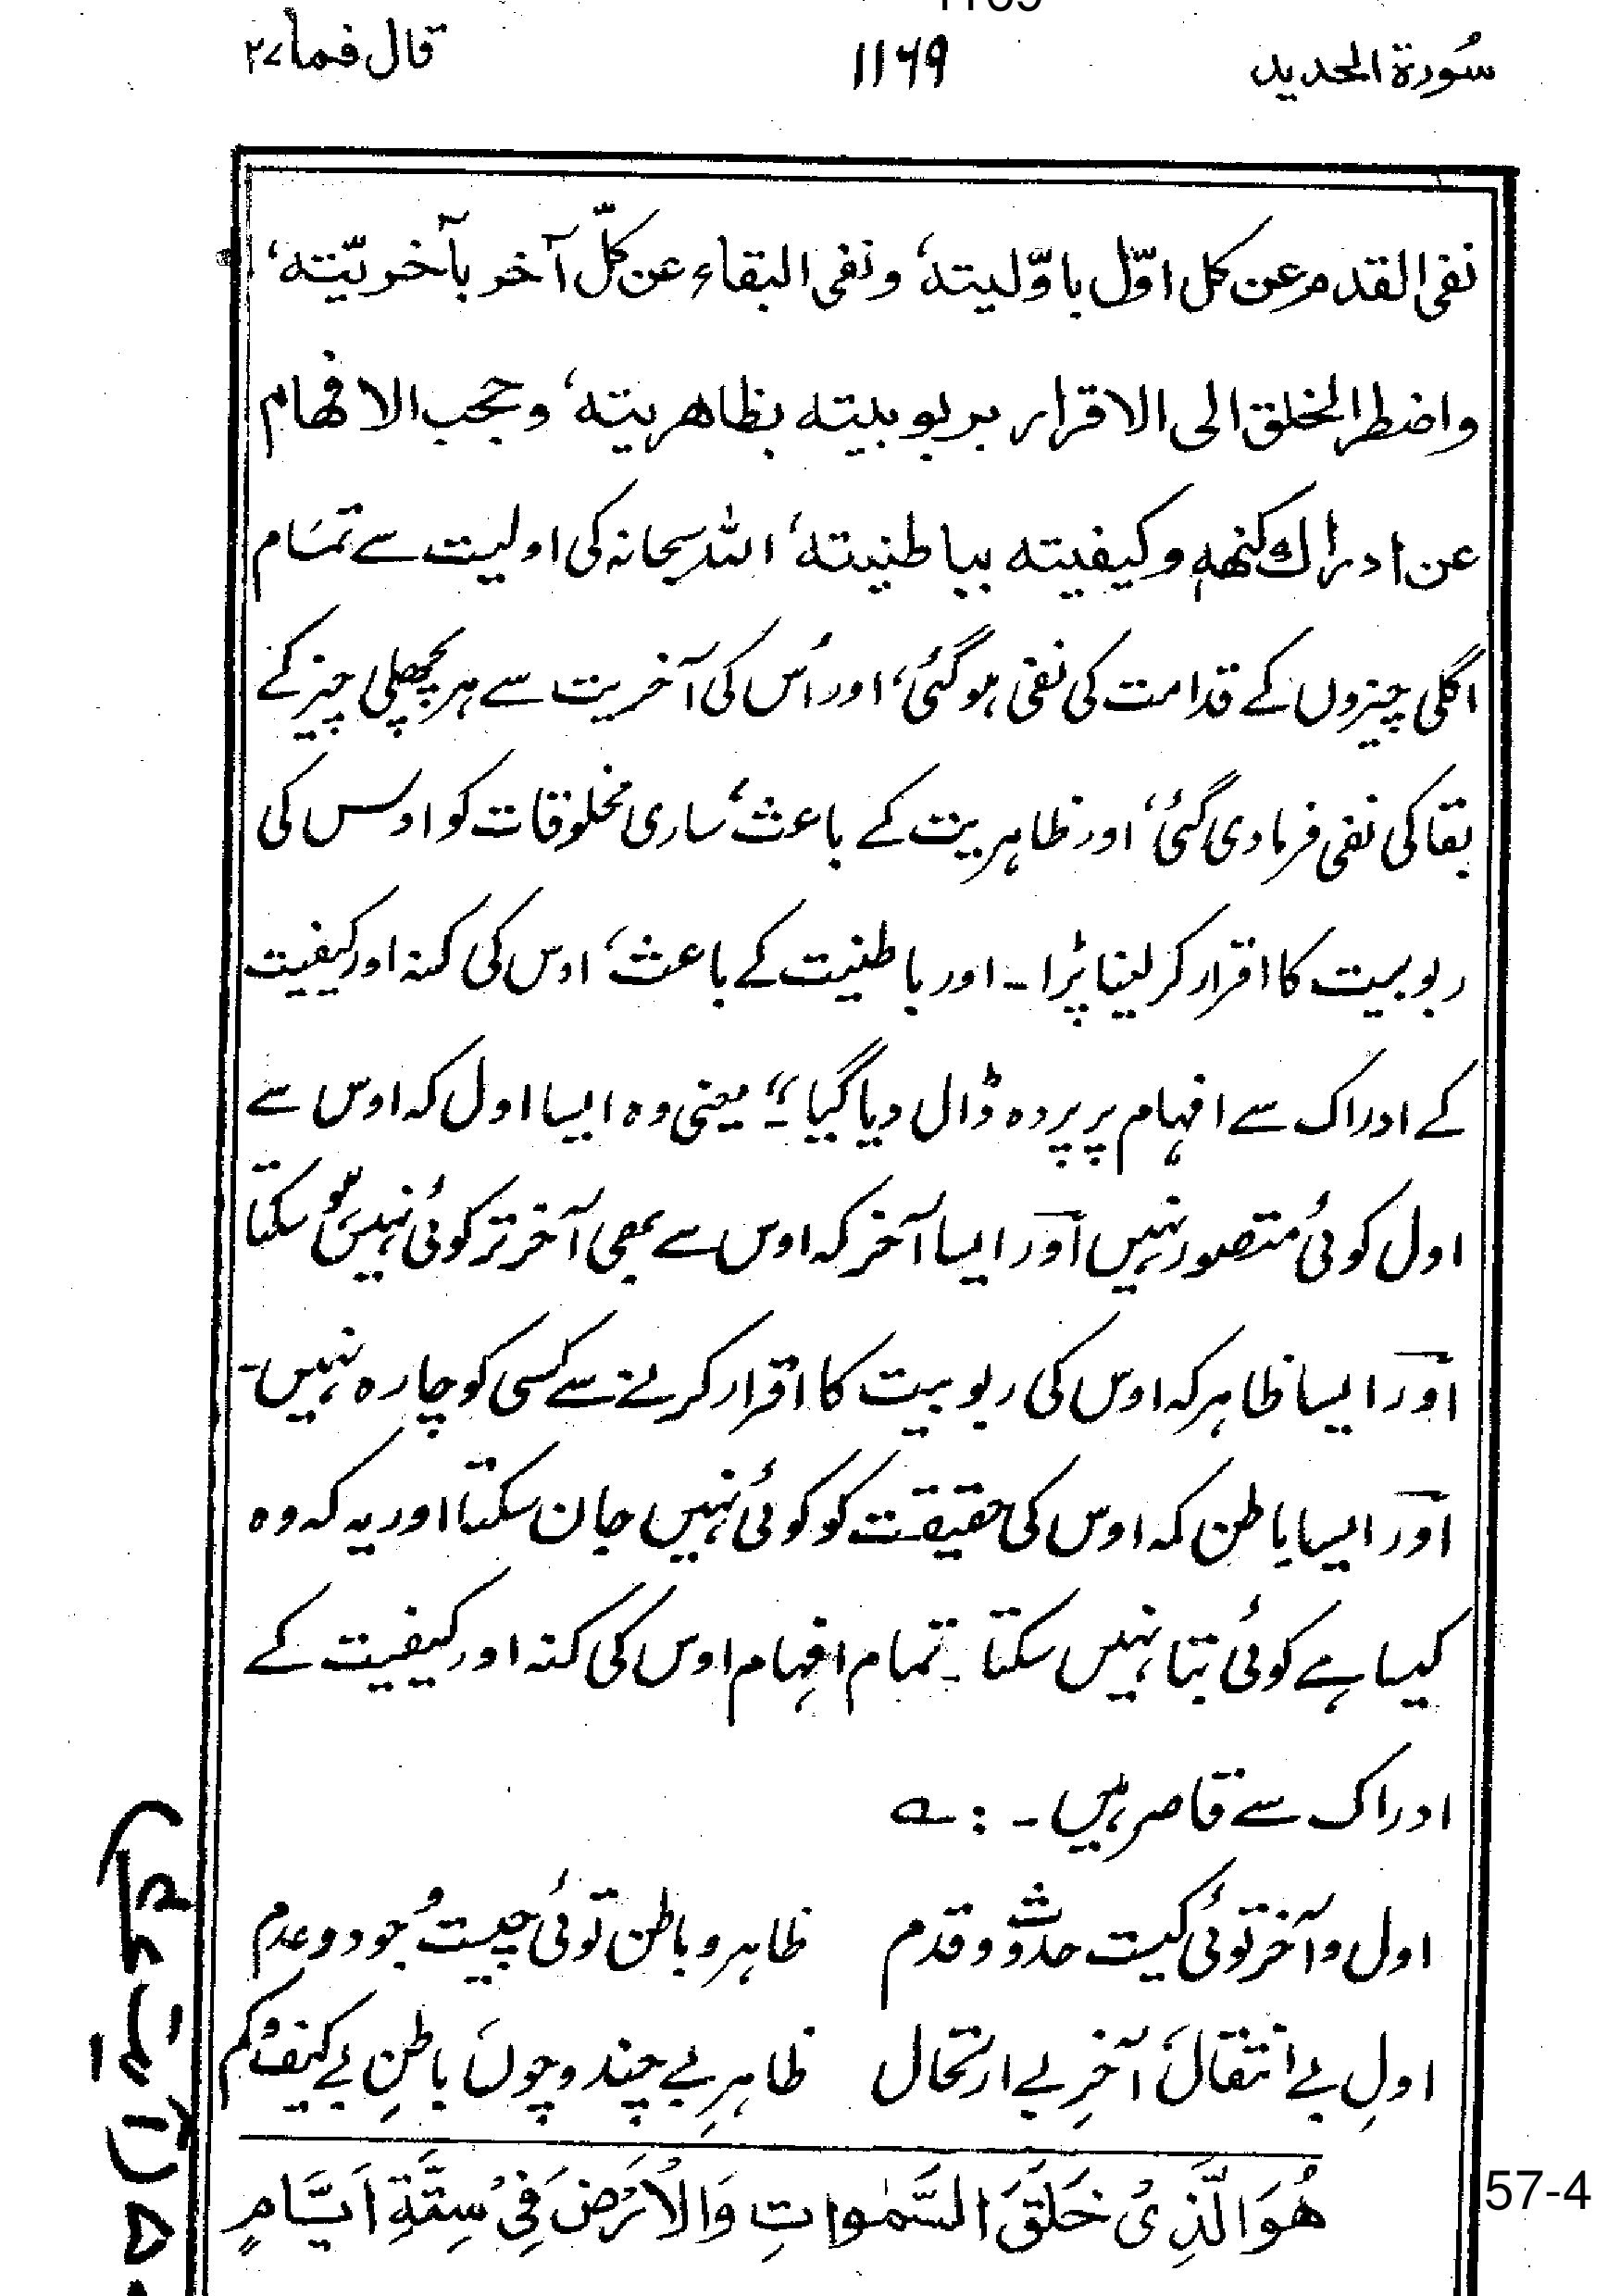 سُورة الحديد ۱۱۶۹ قال فما ۲۷
نفی القدم عن کل اوّل باوّلیتہ، ونفی البقاء عن کلّ آخر بآخریّتہ،
واضطر الخلق الی الاقرار بربوبیتہ بظاهریتہ، وحجب الافهام
عن ادراك کنهہٖ وکیفیتہ بباطنیتہ، اللہ سبحانہ کی اولیت سے تمام
اگلی چیزوں کے قدامت کی نفی ہوگئی، اور اُس کی آخریت سے ہر پچھلی چیز کے
بقا کی نفی فرمادی گئی، اور ظاہریت کے باعث، ساری مخلوقات کو اوس کی
ربوبیت کا اقرار کر لینا پڑا۔ اور باطنیت کے باعث، اوس کی کنہ اور کیفیت
کے ادراک سے افہام پر پردہ ڈال دیا گیا۔" یعنی وہ ایسا اول کہ اوس سے
اول کوئی متصور نہیں اور ایسا آخر کہ اوس سے بھی آخر تر کوئی نہیں ہو سکتا
اور ایسا ظاہر کہ اوس کی ربوبیت کا اقرار کرنے سے کسی کو چارہ نہیں۔
اور ایسا باطن کہ اوس کی حقیقت کو کوئی نہیں جان سکتا اور یہ کہ وہ
کیسا ہے کوئی بتا نہیں سکتا۔ تمام افہام اوس کی کنہ اور کیفیت کے
ادراک سے قاصر ہیں۔ :
اول و آخر توئی کیست حدوث و قدم ظاہر و باطن توئی چیست وُجود و عدم
اولِ بے انتقال، آخرِ بے ارتحال ظاہرِ بے چند و چوں، باطنِ بے کیف و کم
هُوَ الَّذِیْ خَلَقَ السَّمٰوَاتِ وَالْاَرْضَ فِیْ سِتَّةِ اَیَّامٍ
57-4